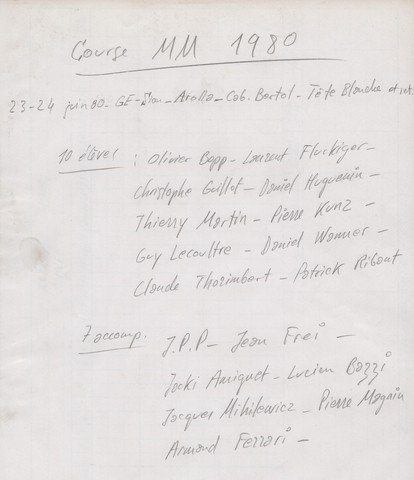 Course MM 1980
23-24 juin 80 - GE - Sion - Arolla - Cab. Bertol - Tête Blanche et ret.
10 élèves : Olivier Bopp - Laurent Fluckiger -
Christophe Guillot - Daniel Huguenin -
Thierry Martin - Pierre Kunz -
Guy Lecoultre - Daniel Wanner -
Claude Thorimbert - Patrick Ribout
7 accomp. J.P.P - Jean Frei -
Jacki Amiguet - Lucien Bazzi
Jacques Mihilewicz - Pierre Magnin
Armand Ferrari -